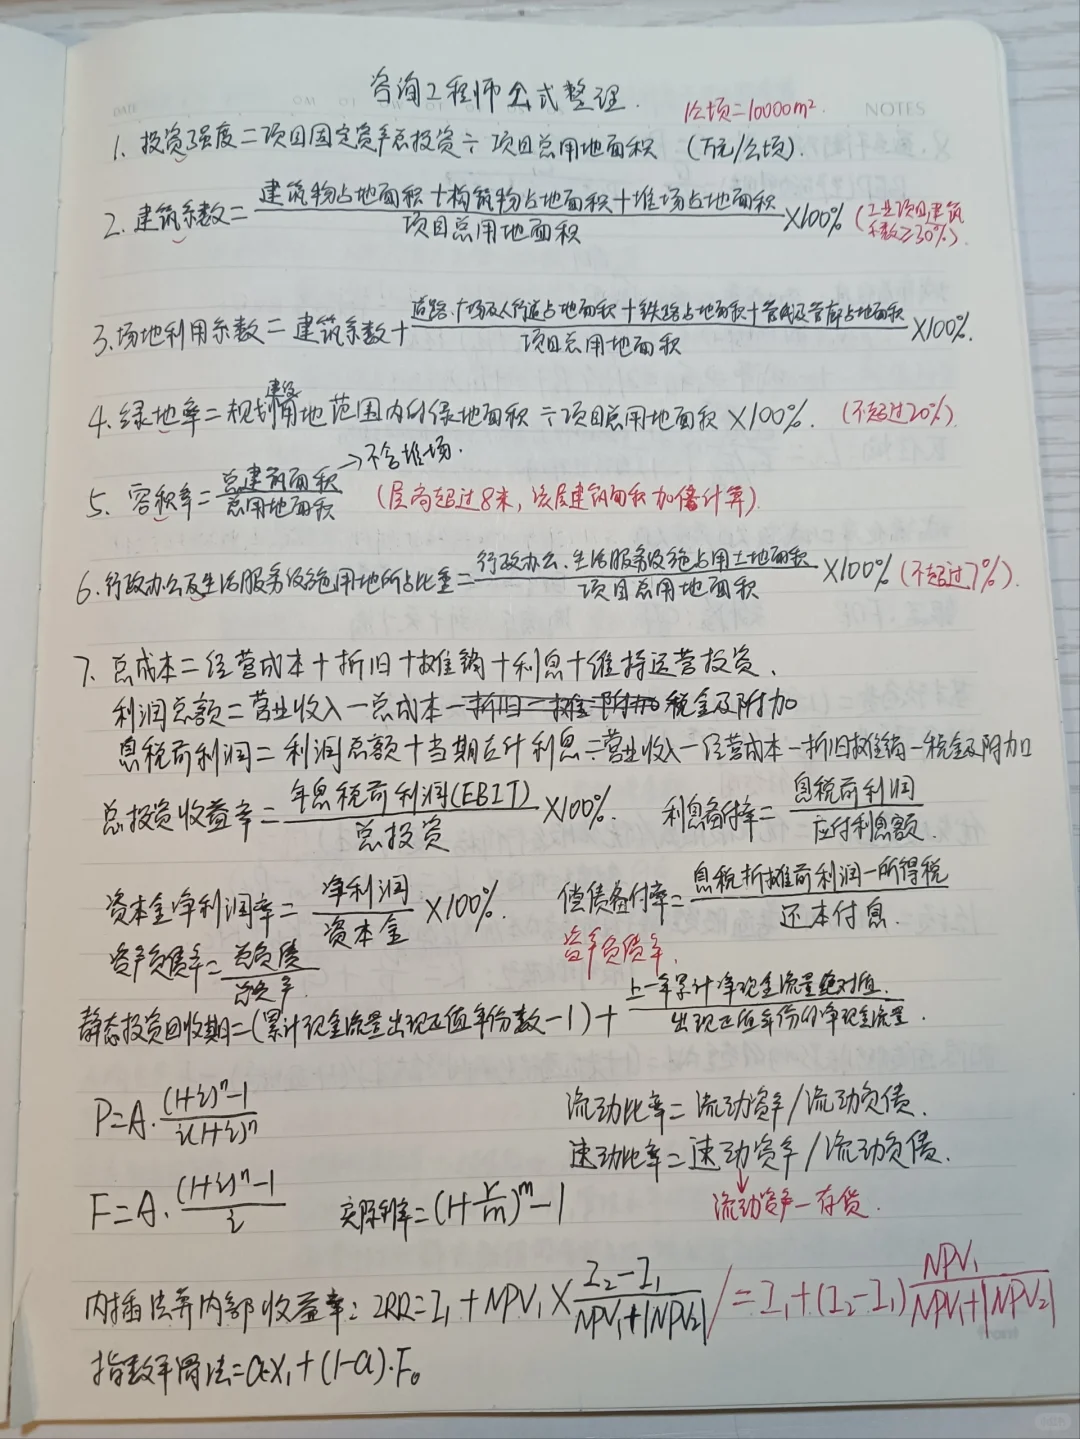 咨询工程师公式整理.
1公顷=10000m².
NOTES
1. 投资强度=项目固定资产总投资÷项目总用地面积 (万元/公顷).
2. 建筑系数=(建筑物占地面积+构筑物占地面积+堆场占地面积)/项目总用地面积 ×100% (工业项目建筑系数≥30%).
3. 场地利用系数=建筑系数+(道路、广场及人行道占地面积+铁路占地面积+管线及管廊占地面积)/项目总用地面积 ×100%.
4. 绿地率=规划建设用地范围内的绿地面积÷项目总用地面积×100%. (不超过20%)
→不含堆场.
5. 容积率=总建筑面积/总用地面积 (层高超过8米,该层建筑面积加倍计算)
6. 行政办公及生活服务设施用地所占比重=行政办公、生活服务设施占用土地面积/项目总用地面积 ×100% (不超过7%).
7. 总成本=经营成本+折旧+摊销+利息+维持运营投资.
利润总额=营业收入-总成本-税金及附加
息税前利润=利润总额+当期应计利息=营业收入-经营成本-折旧摊销-税金及附加
总投资收益率=年息税前利润(EBIT)/总投资 ×100%. 利息备付率=息税前利润/应付利息额.
资本金净利润率=净利润/资本金 ×100%. 偿债备付率=息税折摊前利润-所得税/还本付息.
资产负债率=总负债/总资产. 资产负债率.
静态投资回收期=(累计现金流量出现正值年份数-1)+上一年累计净现金流量绝对值/出现正值年份的净现金流量.
P=A·((1+i)ⁿ-1)/(i(1+i)ⁿ) 流动比率=流动资产/流动负债.
速动比率=速动资产/流动负债.
F=A·((1+i)ⁿ-1)/i 实际利率=(1+r/m)^m-1 流动资产-存货.
内插法算内部收益率: IRR=I₁+NPV₁×(I₂-I₁)/(NPV₁+|NPV₂|) / =I₁+(I₂-I₁)NPV₁/(NPV₁+|NPV₂|)
指数平滑法=α·X₁+(1-α)·F₀